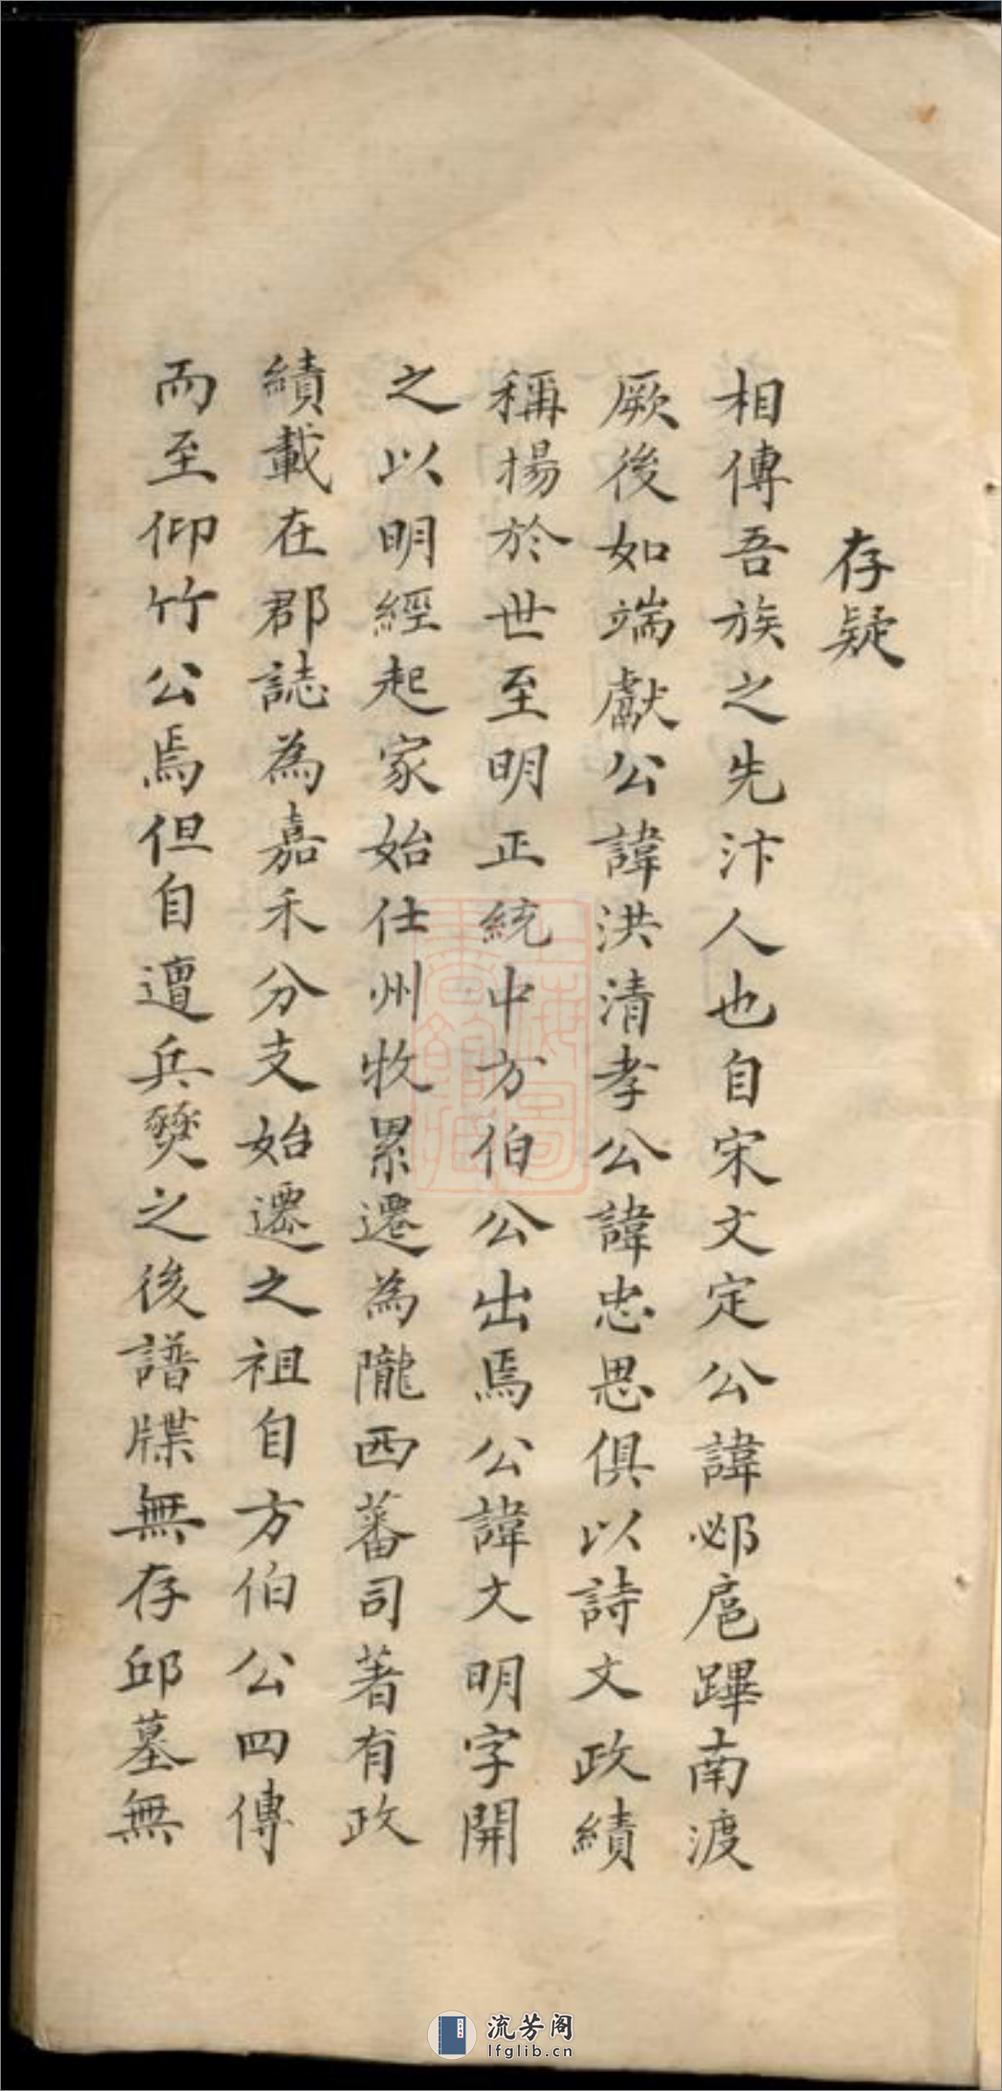 存疑
相傳吾族之先汴人也自宋文定公諱邲扈蹕南渡
厥後如端獻公諱洪清孝公諱忠思俱以詩文政績
稱揚於世至明正統中方伯公出焉公諱文明字開
之以明經起家始仕州牧累遷為隴西蕃司著有政
績載在郡誌為嘉禾分支始遷之祖自方伯公四傳
而至仰竹公焉但自遭兵燹之後譜牒無存邱墓無
上海圖書館藏
流芳阁
lfglib.cn